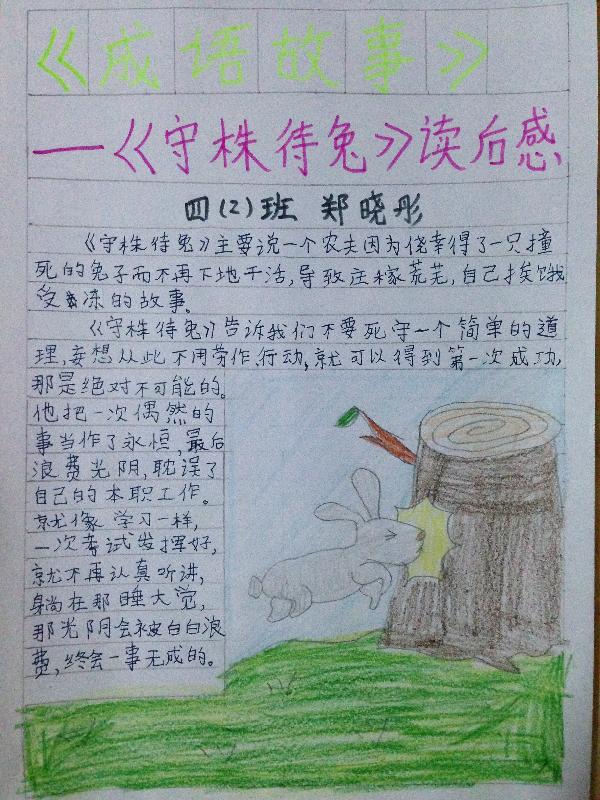 《成语故事》
—《守株待兔》读后感
四(2)班 郑晓彤
《守株待兔》主要说一个农夫因为侥幸得了一只撞
死的兔子而不再下地干活,导致庄稼荒芜,自己挨饿
受冻的故事。
《守株待兔》告诉我们不要死守一个简单的道
理,妄想从此不用劳作,行动,就可以得到第一次成功,
那是绝对不可能的。
他把一次偶然的
事当作了永恒,最后
浪费光阴,耽误了
自己的本职工作。
就像学习一样,
一次考试发挥好,
就不再认真听讲,
躺在那睡大觉,
那光阴会被白白浪
费,终会一事无成的。